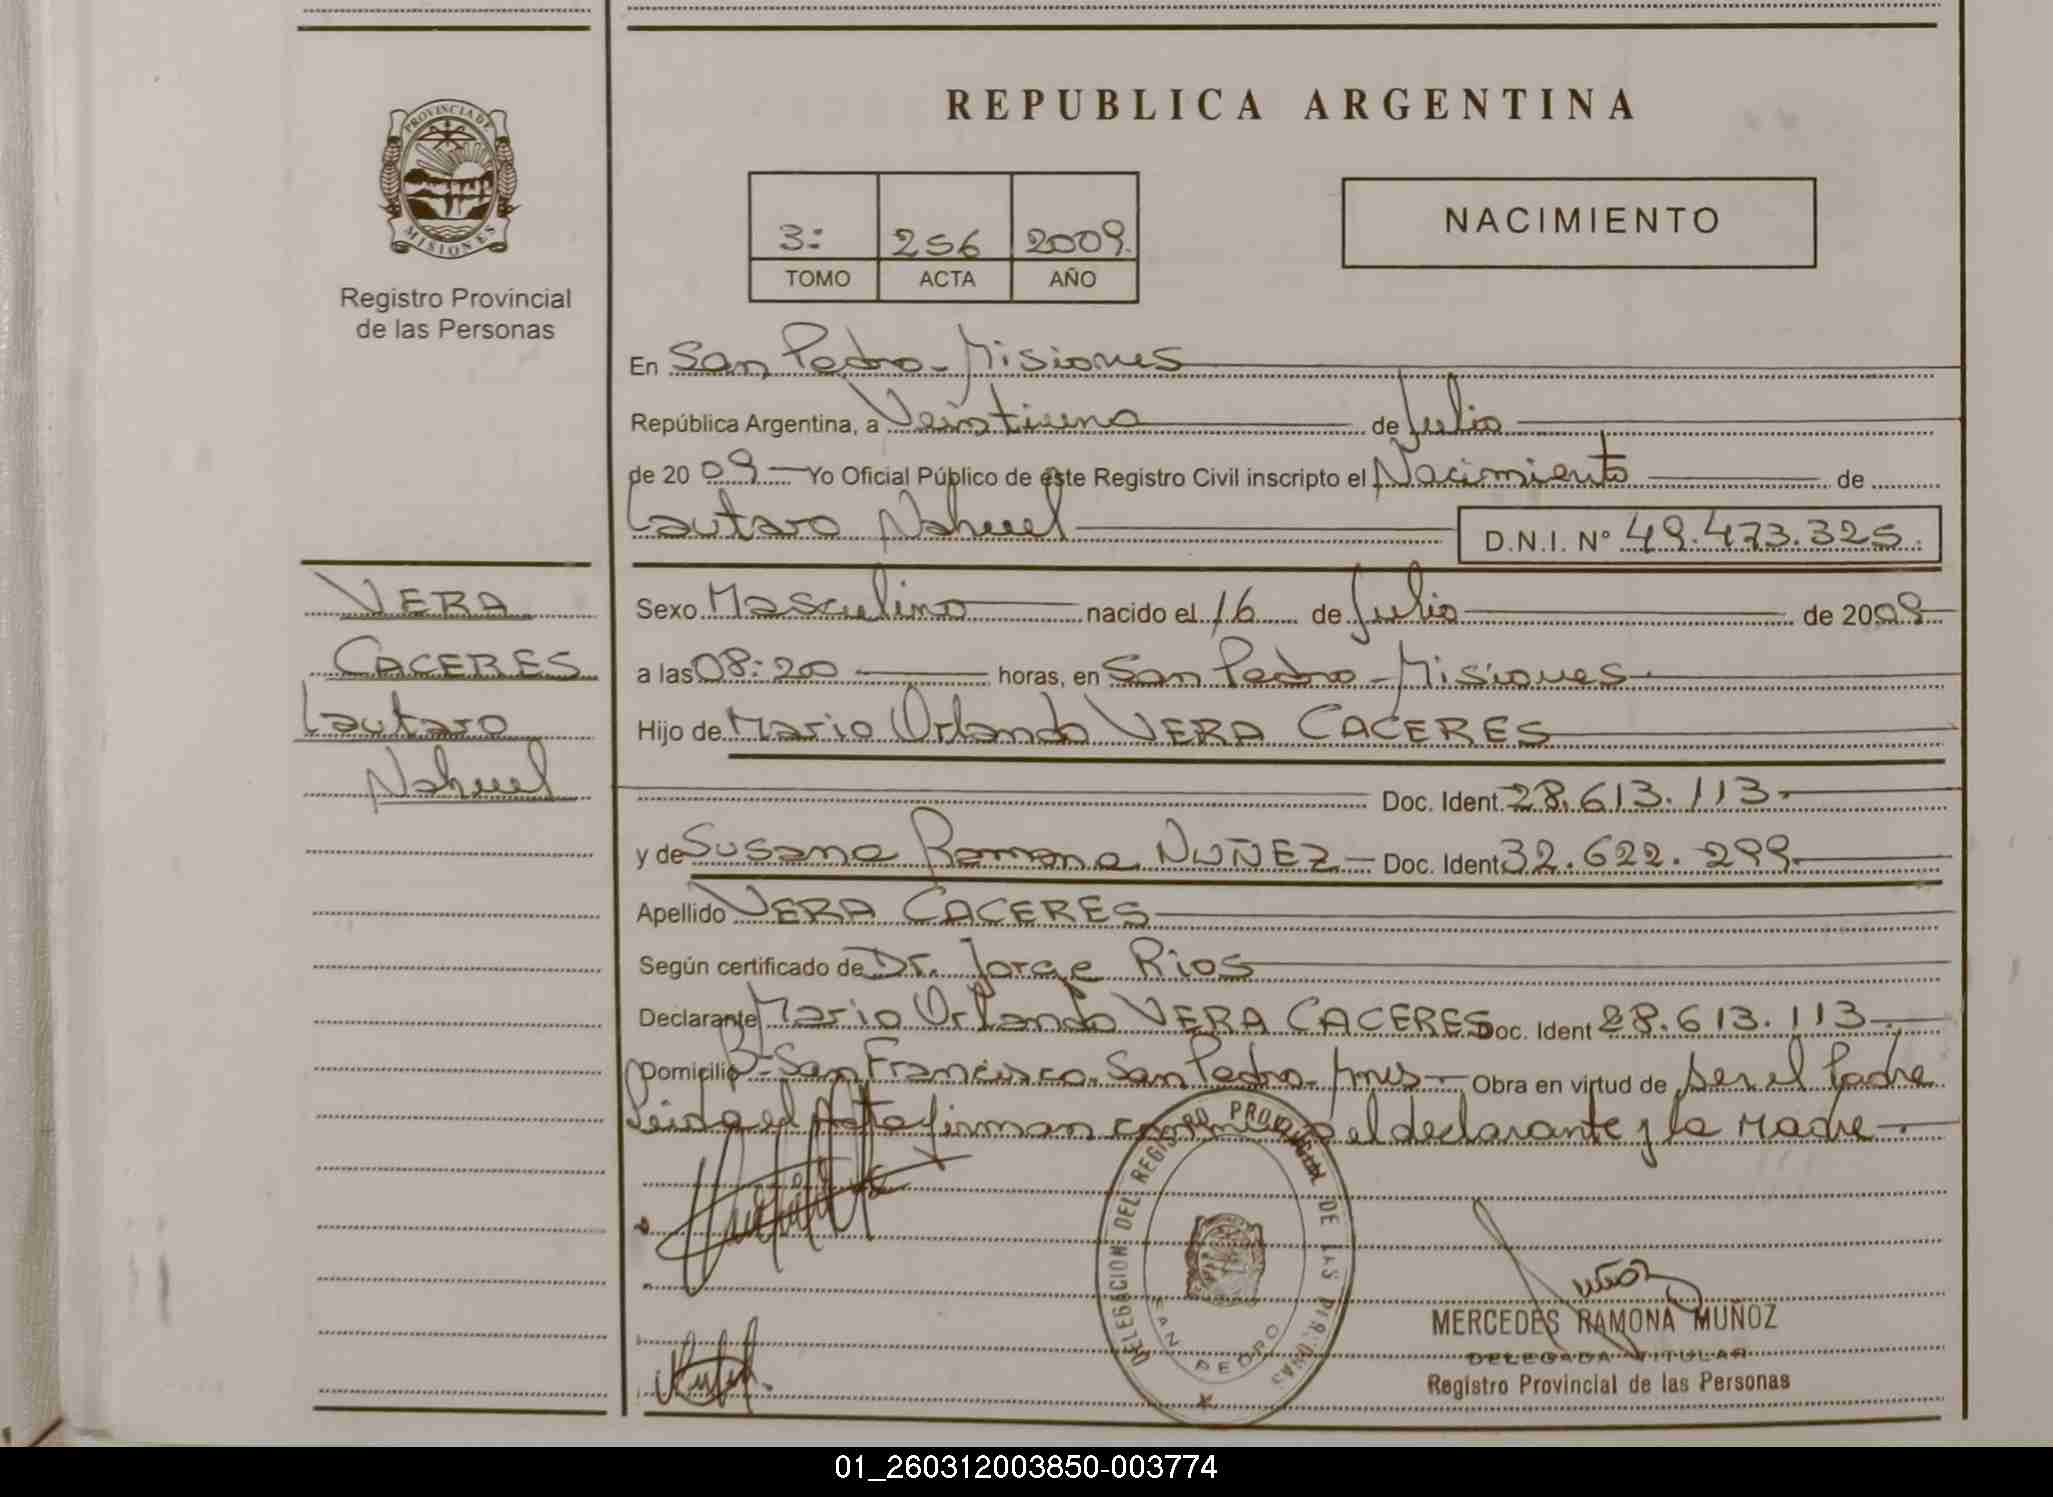 PROVINCIA DE
MISIONES
Registro Provincial
de las Personas
VERA
CACERES
Lautaro
Nahuel
REPUBLICA ARGENTINA
3: 256 2009.
TOMO ACTA AÑO
NACIMIENTO
En San Pedro - Misiones
República Argentina, a Veintiuno de Julio
de 20 09 Yo Oficial Público de este Registro Civil inscripto el Nacimiento de
Lautaro Nahuel D.N.I. N° 49.473.325.
Sexo Masculino nacido el 16 de Julio de 2009
a las 08:20 horas, en San Pedro - Misiones
Hijo de Mario Orlando VERA CACERES
Doc. Ident. 28.613.113.
y de Susana Ramona NUÑEZ Doc. Ident 32.622.299.
Apellido VERA CACERES
Según certificado de Dr. Jorge Rios
Declarante Mario Orlando VERA CACERES Doc. Ident 28.613.113
Domicilio B- San Francisco. San Pedro - Mnes Obra en virtud de ser el Padre
Leida el Acta firman conmigo el declarante y la Madre
DELEGACION DEL REGISTRO PROVINCIAL DE LAS PERSONAS
SAN PEDRO
MERCEDES RAMONA MUÑOZ
DELEGADA TITULAR
Registro Provincial de las Personas
01_260312003850-003774